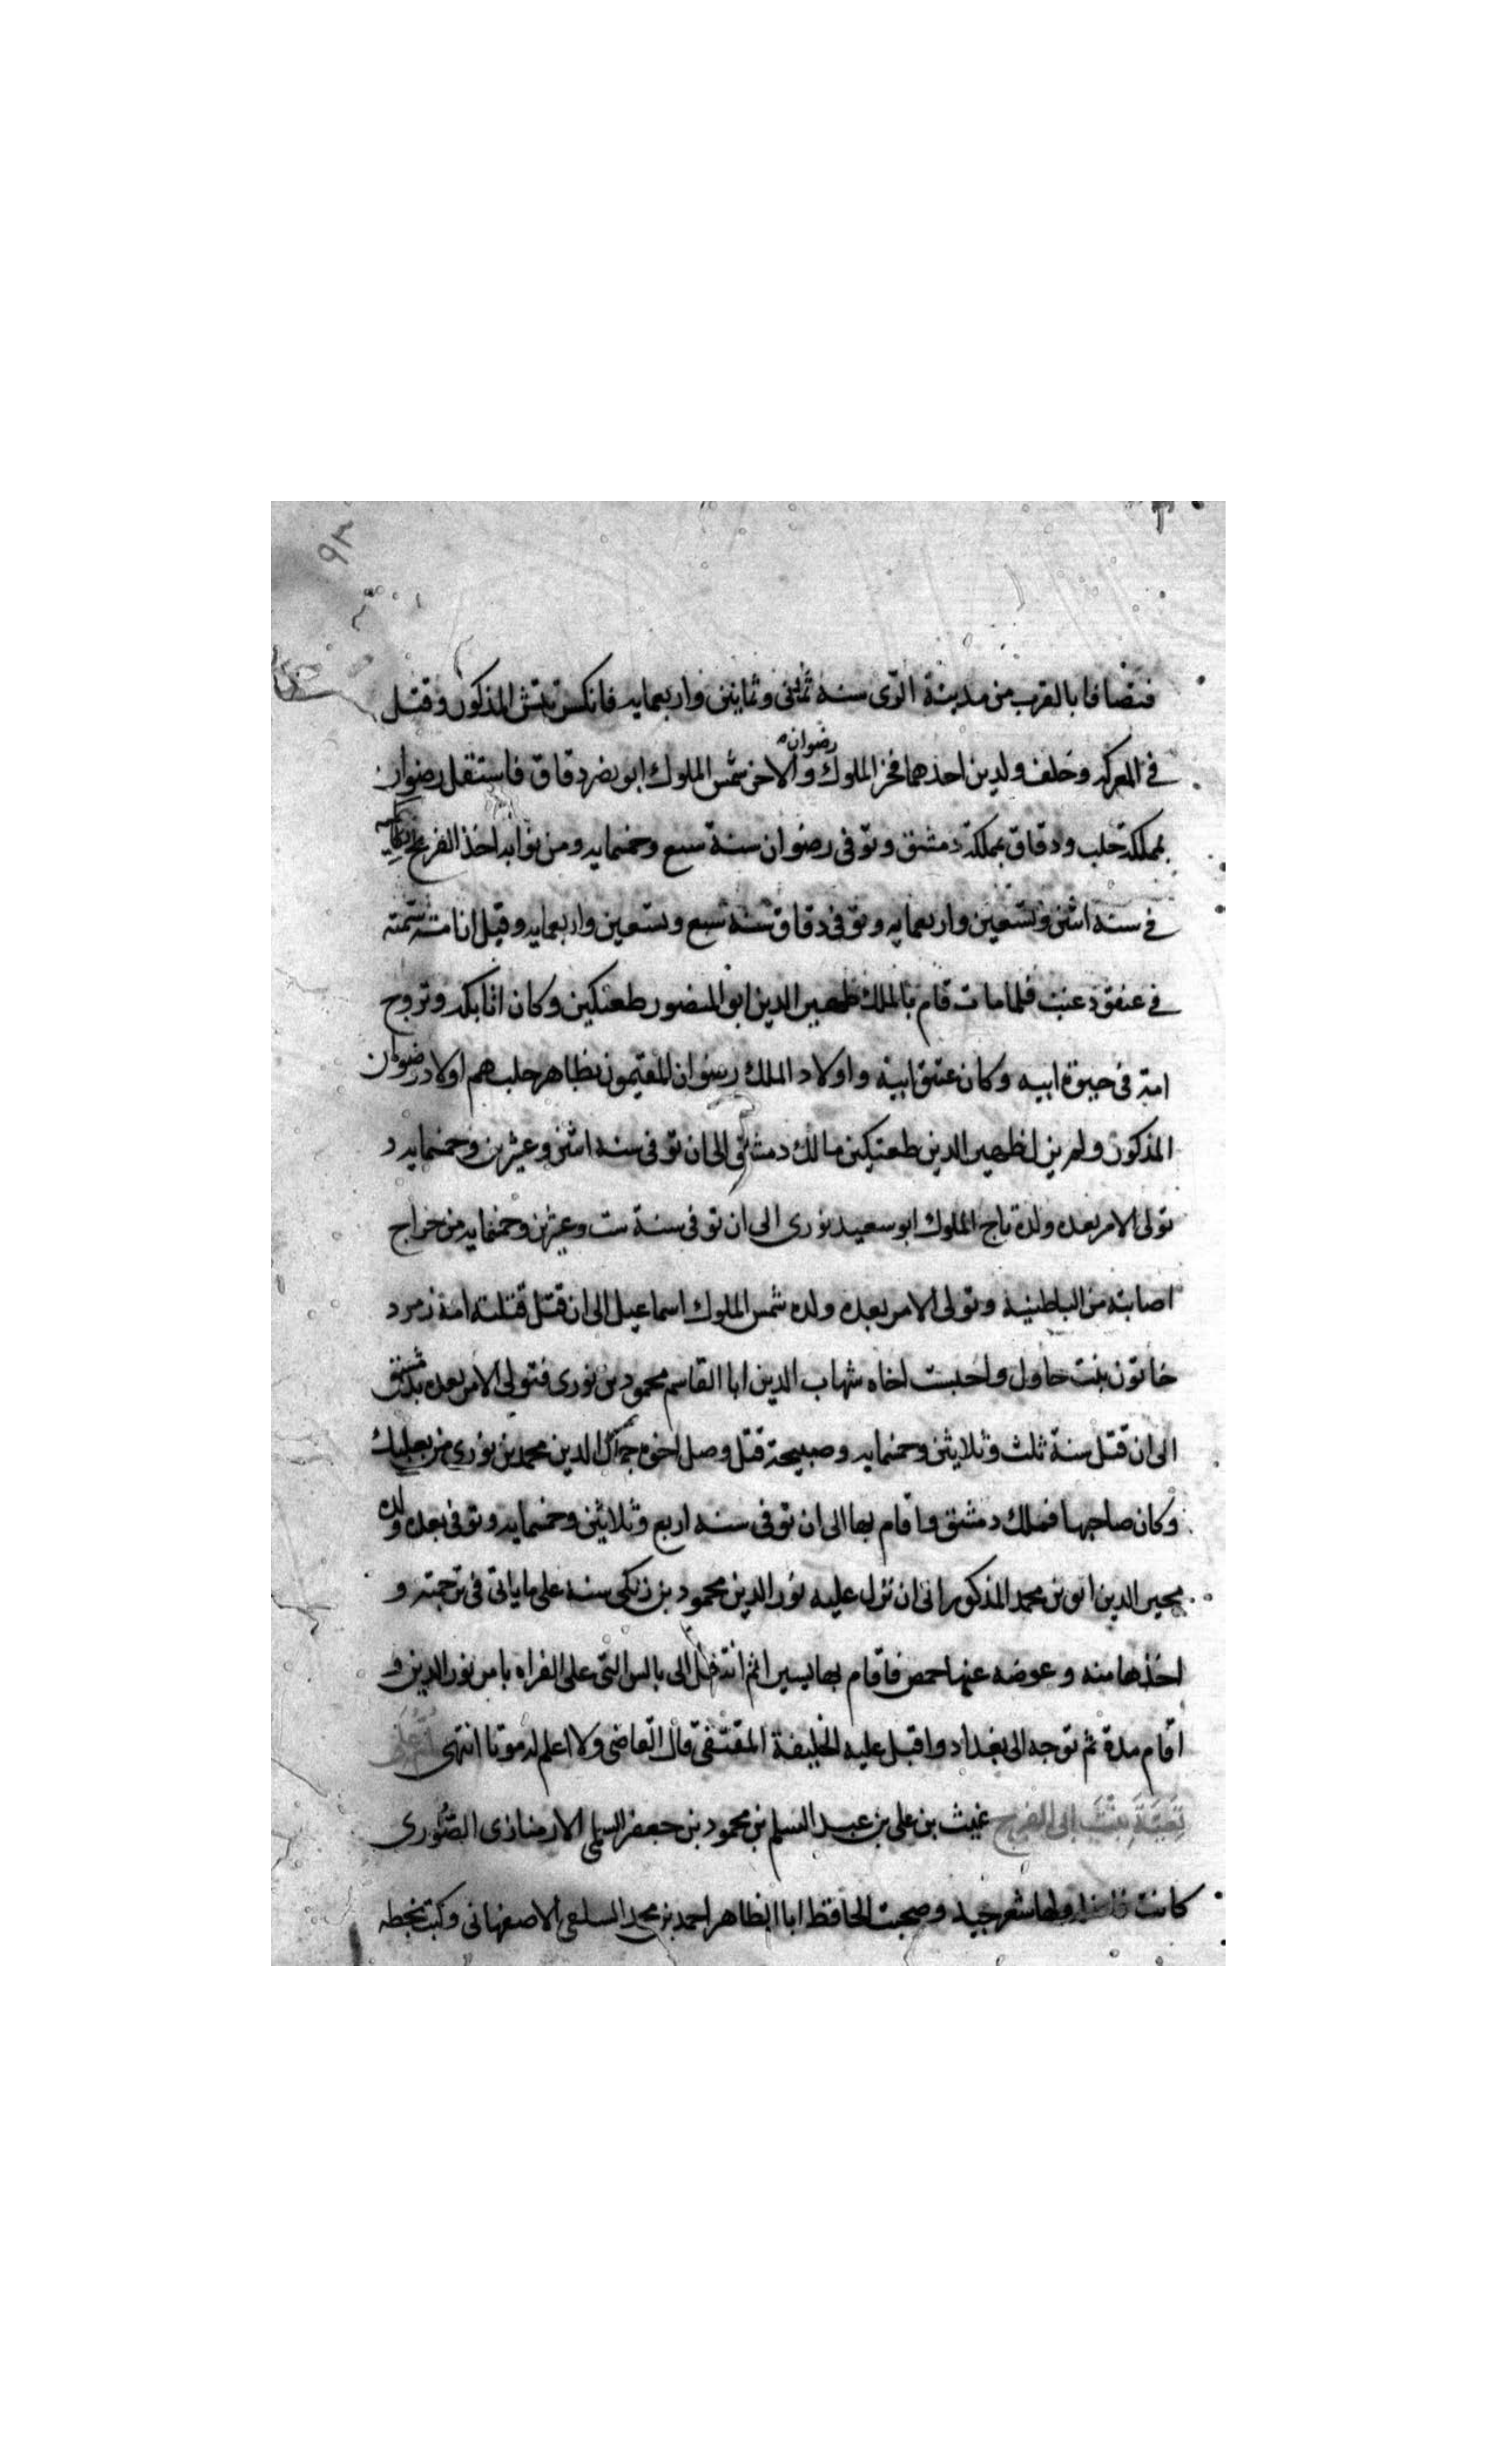 ٩٣
فتصافا بالقرب من مدينة الرى سنه ثمان وثمانين واربعمايه فانكسر تتش المذكور وقتل
في المعركه وخلف ولدين احدهما فخر الملوك رضوان والاخر شمس الملوك ابو نصر دقاق فاستقل رضوان
بمملكة حلب ودقاق بمملكة دمشق وتوفى رضوان سنة سبع وخمسمايه ومن نوابه اخذ الفرنج انطاكيه
في سنه اثنين وتسعين واربعمايه وتوفى دقاق سنه سبع وتسعين واربعمايه وقيل ان امه سمته
في عنقود عنب فلما مات قام بالملك ظهير الدين ابو المنصور طغتكين وكان اتابكه وتزوج
امه فى حيوة ابيه وكان عتيق ابيه واولاد الملك رضوان المقيمون بظاهر حلب هم اولاد رضوان
المذكور ولم يزل ظهير الدين طغتكين مالك دمشق الى ان توفى سنه اثنين وعشرين وخمسمايه و
تولى الامر بعده ولده تاج الملوك ابو سعيد بورى الى ان توفى سنة ست وعشرين وخمسمايه من جراح
اصابته من الباطنية وتولى الامر بعده ولده شمس الملوك اسماعيل الى ان قتل قتلته امه زمرد
خاتون بنت جاولى واجلست اخاه شهاب الدين ابا القاسم محمود بن بورى فتولى الامر بعده بدمشق
الى ان قتل سنة ثلث وثلاثين وخمسمايه وصبيحة قتل وصل اخوه جمال الدين محمد بن بورى من بعلبك
وكان صاحبها فملك دمشق واقام بها الى ان توفى سنه اربع وثلاثين وخمسمايه وتوفى بعده ولده
مجير الدين ابق بن محمد المذكور الى ان نزل عليه نور الدين محمود بن زنكى سنه على ما ياتى فى ترجمته و
اخذها منه وعوضه عنها حمص فاقام بها يسيرا ثم انتقل الى بالس التى على الفراه بامر نور الدين و
اقام مدة ثم توجه الى بغداد واقبل عليه الخليفة المقتفى قال القاضى ولا اعلم له موتا انتهى ام على
تقية بنت ابى الفرج غيث بن على بن عبد السلم بن محمود بن جعفر السلمى الارمنازى الصورى
كانت فاضلة ولها شعر جيد وصحبت الحافظ ابا الطاهر احمد بن محمد السلفى الاصفهانى وكتب بخطه